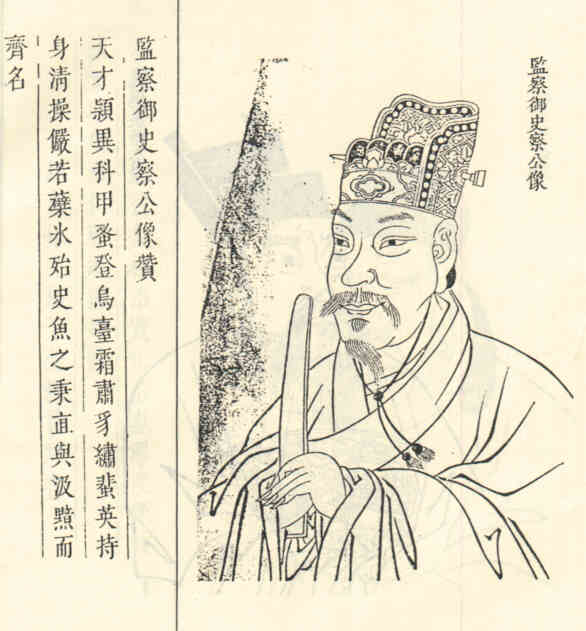 監察御史察公像
監察御史察公像贊
天才頴異科甲蚤登烏臺霜肅豸繡蜚英持
身清操儼若蘗氷殆史魚之秉直與汲黯而
齊名